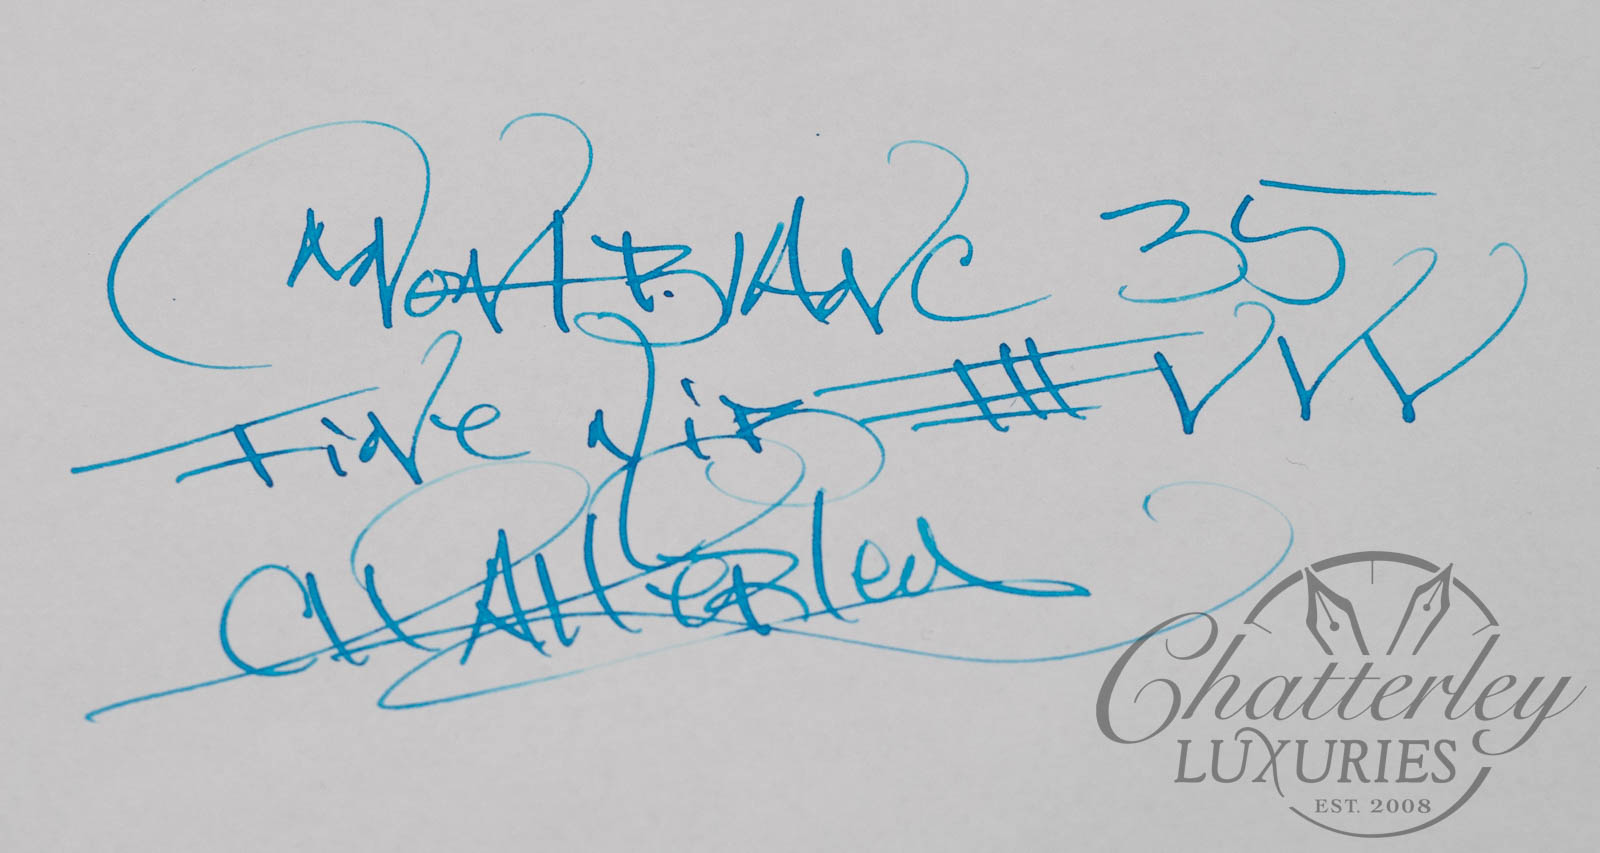 MontBlanc 35
Fine Nib
Chatterley
Chatterley
LUXURIES
EST. 2008